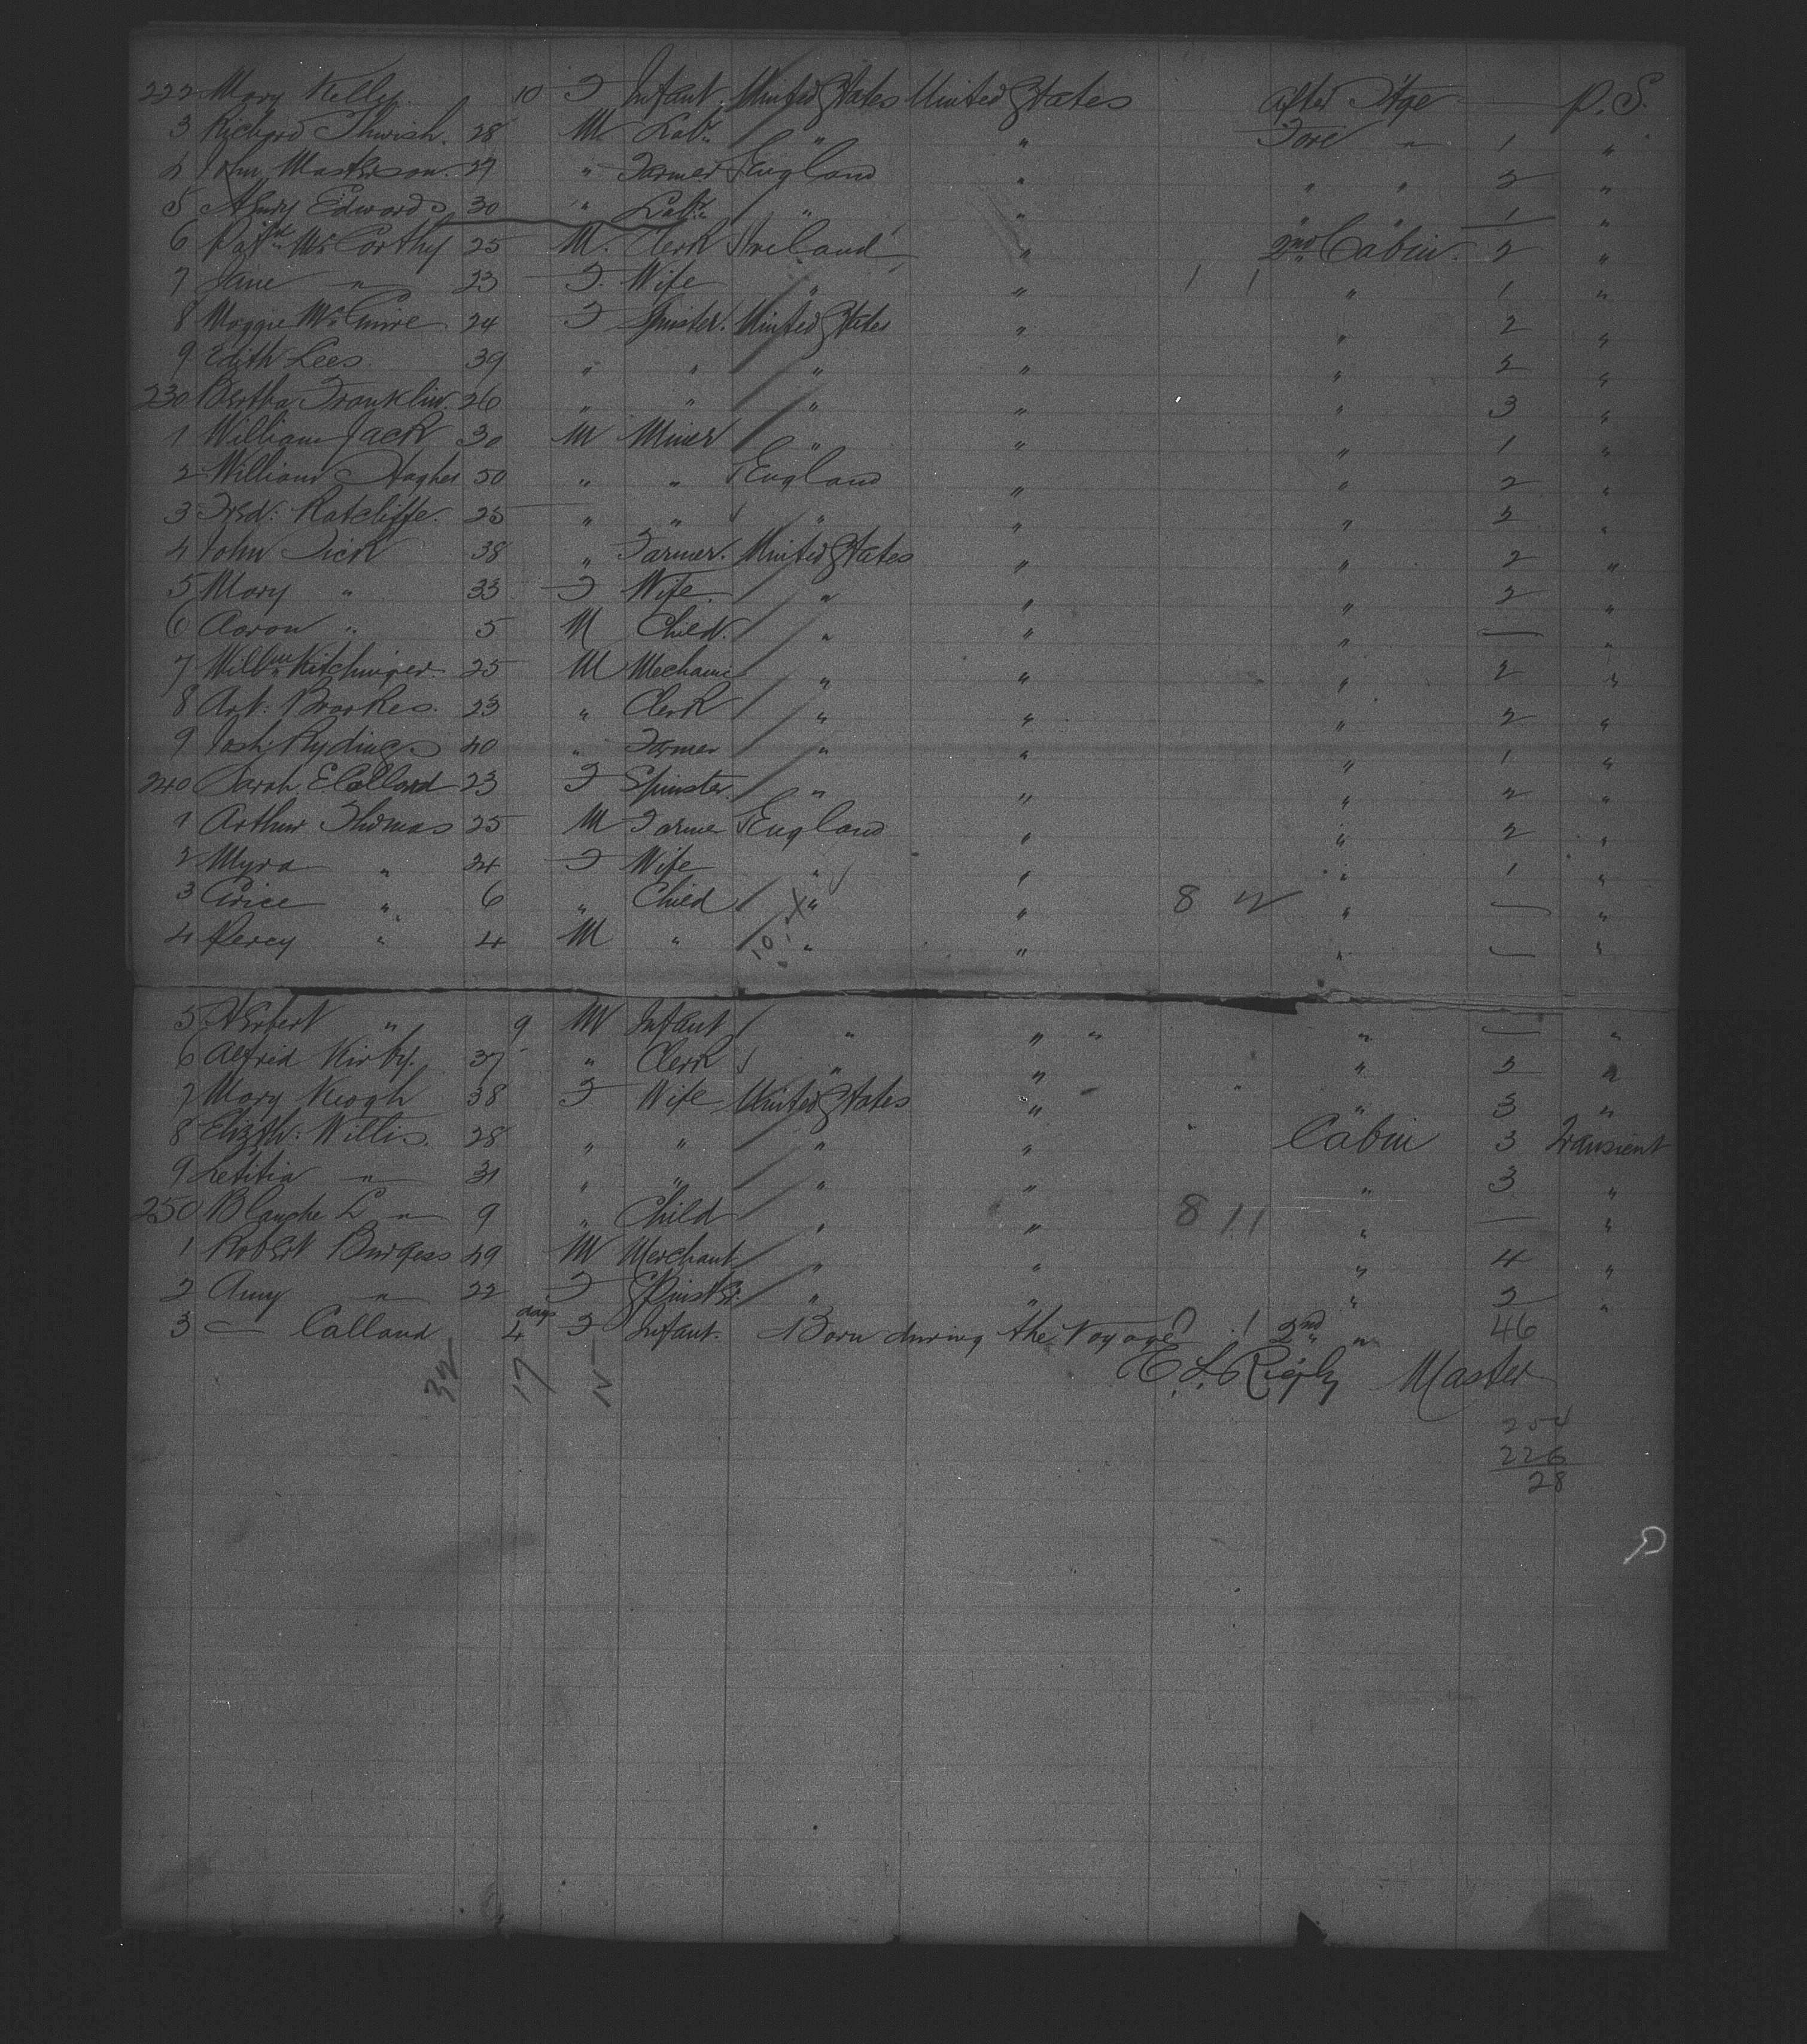 222 Mary Kelly 10 F Infant United States United States after Stge — P. S.
3 Richard Thwish. 28 M Labr. " " Fore " 1 "
4 John Masterson. 27 " Farmer England " " " 2 "
5 Henry Edwards 30 " Labr. " " " " 1 "
6 Patk. McCarthy 25 M. Clerk Ireland " 2nd Cabin. 2 "
7 Jane " 23 F. Wife " " 1 1 " 1 "
8 Maggie McGuire 24 F Spinster. United States " " 2 "
9 Edith Lees 39 " " " " " 2 "
230 Bertha Franklin. 26 " " " " " 3 "
1 William Jack 30 M Miner " " " 1 "
2 William Hughes 50 " " England " " 2 "
3 Fred: Ratcliffe. 25 " " " " " 2 "
4 John Dick 38 " Farmer. United States " " 2 "
5 Mary " 33 F Wife. " " " 2 "
6 Aaron " 5 M Child. " " " — "
7 Willm Kitchinger. 25 M Mechanic " " " 2 "
8 Art: Brookes. 23 " Clerk " " " 2 "
9 Josh: Rydings 40 " Farmer " " " 1 "
240 Sarah E Calland 23 F Spinster. " " " 2 "
1 Arthur Thomas 25 M Farmer England " " 2 "
2 Myra " 24 F Wife " " " 1 "
3 " 6 " Child " " 8 " — "
4 Percy " 4 M " " " " — "
5 Herbert " 9 M Infant " " " " — "
6 Alfrid Kirby. 37 " Clerk " " " 2 "
7 Mary Keogh 38 F Wife United States " " 3 "
8 Elizth: Willis. 28 " " " " Cabin 3 Transient
9 Letitia " 31 " " " " " 3 "
250 Blanche L " 9 " Child " " 8 11 " — "
1 Robert Burgess 49 M Merchant " " " 4 "
2 Amy " 22 F Spinstr. " " " 2 "
3 — Calland 4 days F Infant. Born during the Voyage 1 2nd " 46
E. L. Rigby Master
32 17 15
254
226
28